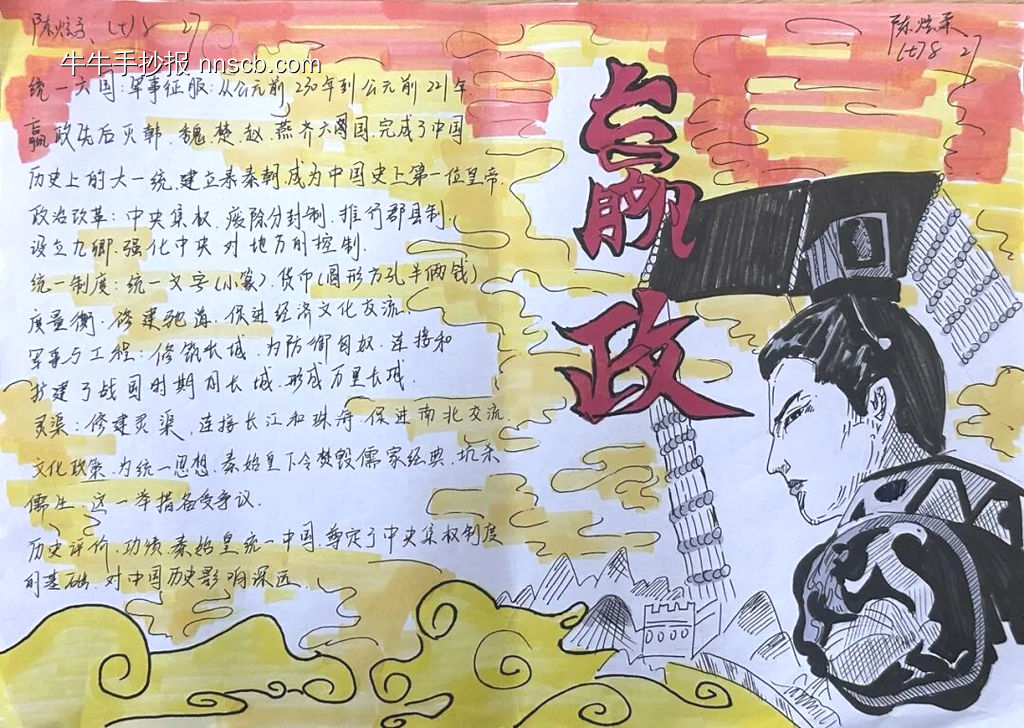 陈炫柔 (七)8 27
牛牛手抄报 nnscb.com
统一六国:军事征服:从公元前230年到公元前221年
嬴政先后灭韩、魏、楚、赵、燕、齐六国,完成了中国
历史上的大一统,建立秦朝,成为中国史上第一位皇帝.
政治改革:中央集权、废除分封制、推行郡县制,
设立九卿,强化中央对地方的控制.
统一制度:统一文字(小篆)、货币(圆形方孔半俩钱)
度量衡,修建驰道,促进经济文化交流.
军事与工程:修筑长城,为防御匈奴,连接和
扩建了战国时期的长城,形成万里长城.
灵渠:修建灵渠,连接长江和珠江,促进南北交流.
文化政策:为统一思想,秦始皇下令焚毁儒家经典,坑杀
儒生,这一举措备受争议.
历史评价:功绩:秦始皇统一中国,奠定了中央集权制度
的基础,对中国历史影响深远.
嬴
政
陈炫柔
(七)8 27